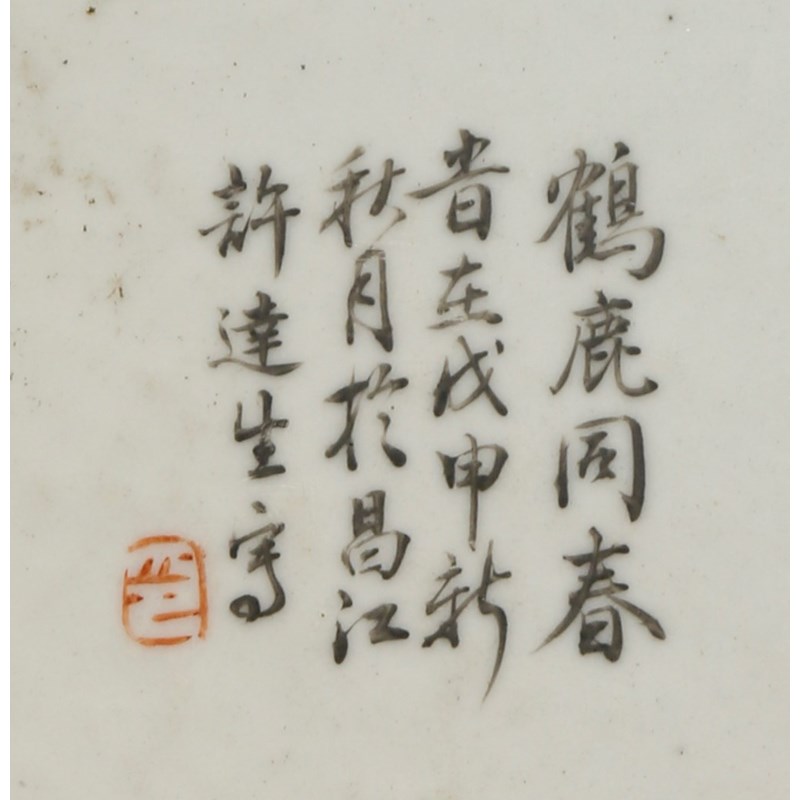 鶴鹿同春
旹在戊申新
秋月於昌江
許達生寫